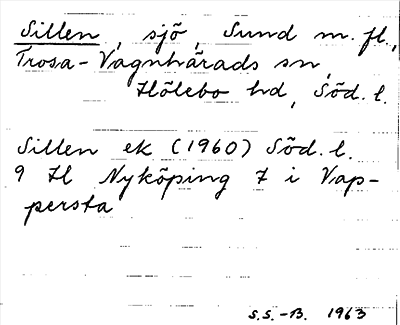 Sillen, sjö, Sund m. fl.,
Trosa-Vagnhärads sn,
Hölebo hd, Söd. l.
Sillen ek (1960) Söd. l.
9 H Nyköping 7 i Vap-
persta
S.S.-B. 1963